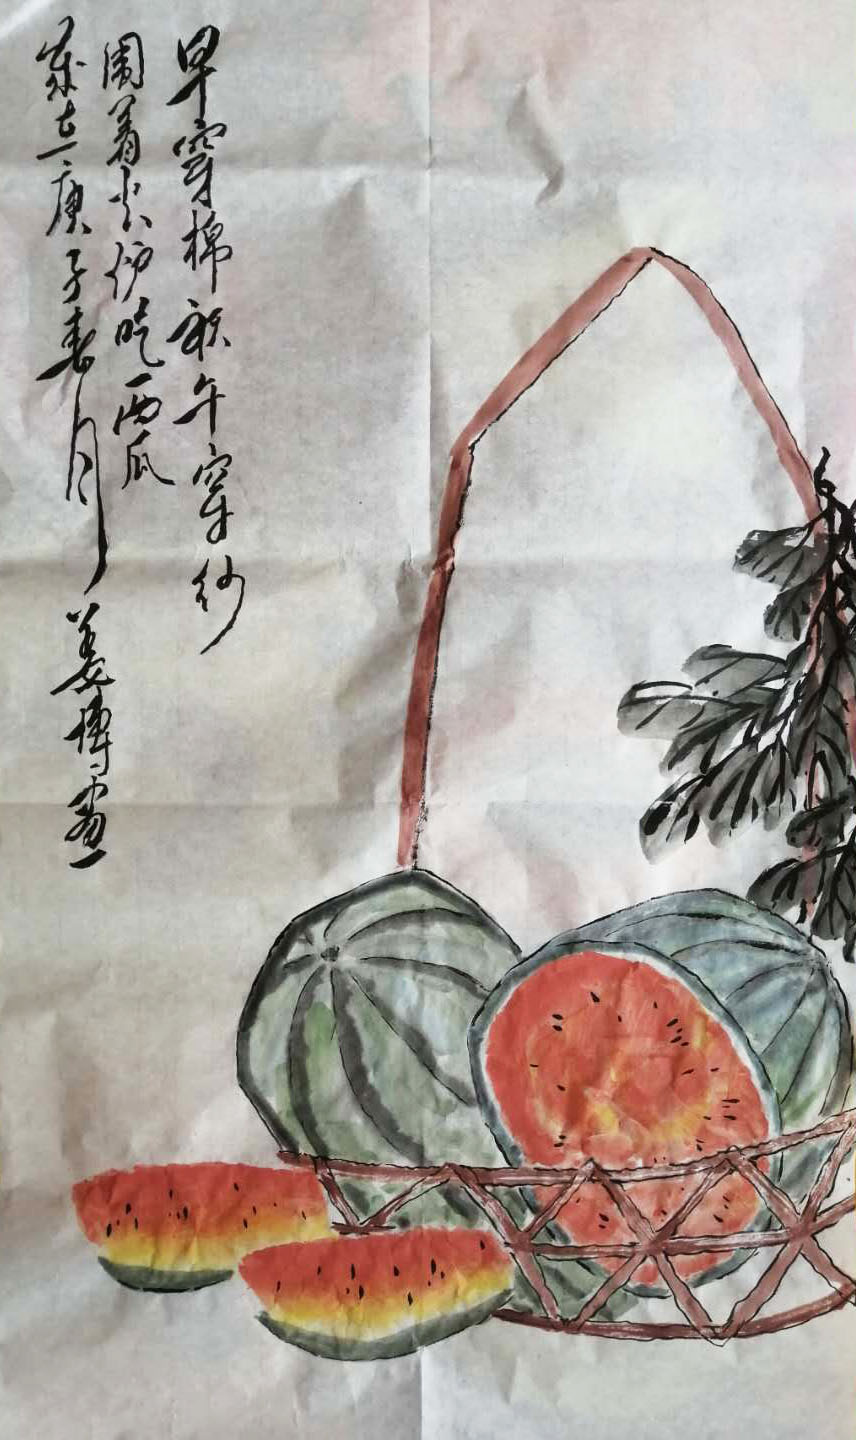 早穿棉袄午穿纱
围着火炉吃西瓜
岁在庚子春月 姜博画